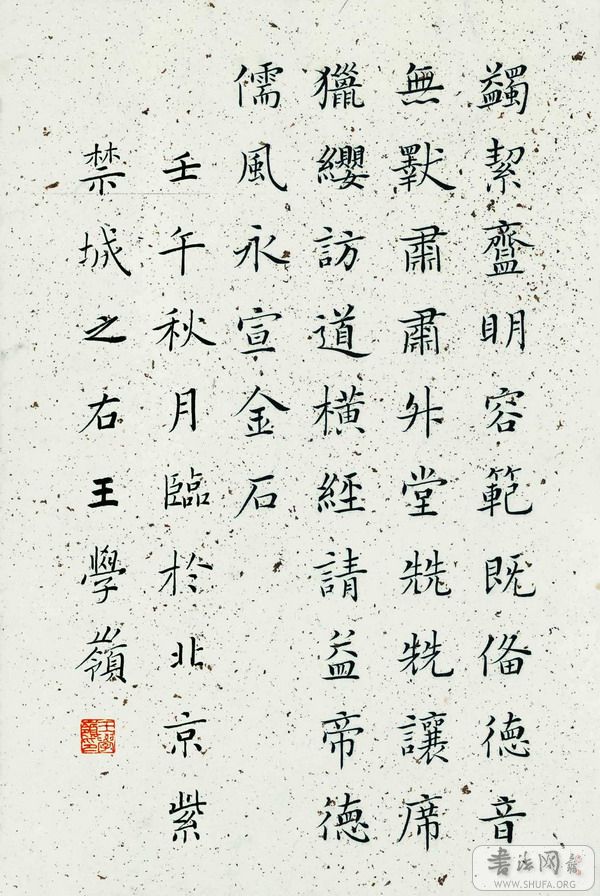 蠲絜齍眀容範既俻德音
無斁肅肅升堂兟兟讓席
獵纓訪道橫經請益帝德
儒風永宣金石
壬午秋月臨於北京紫
禁城之右王學嶺
王學嶺印
书法网
WWW.SHUFA.ORG